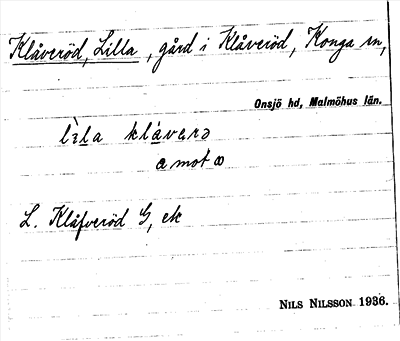 Klåveröd, Lilla, gård i Klåveröd, Konga sn,
Onsjö hd, Malmöhus län.
lìla klávərə
a mot ω
L. Klåfveröd G, etc
NILS NILSSON 1936.